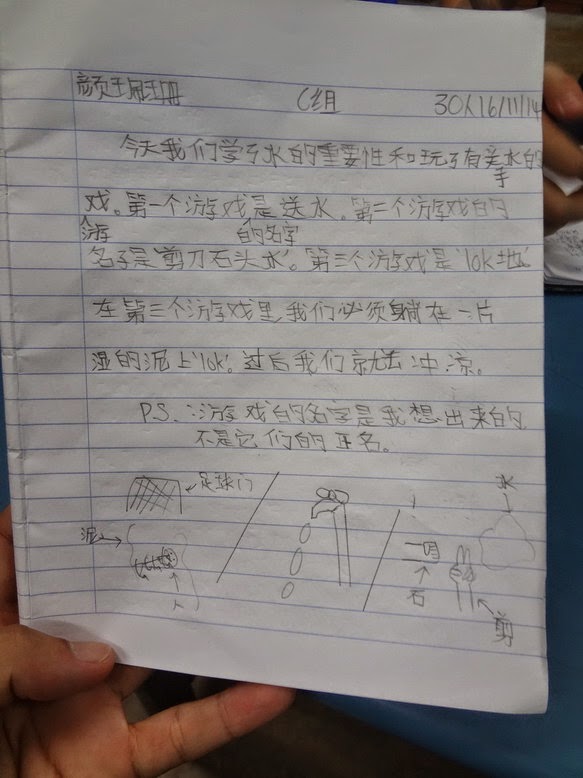 颜 珊 C组 30人16/11/14
今天我们学了水的重要性和玩了有关水的
手
戏。第一个游戏是送水。第二个游戏的
游 的名字
名字是‘剪刀石头水’。第三个游戏是‘lok地’
在第三个游戏里,我们必须躺在一片
湿的泥上‘lok’。过后我们就去冲凉。
P.S. :游戏的名字是我想出来的
不是它们的正名。
足球门
水
泥
人
石
剪